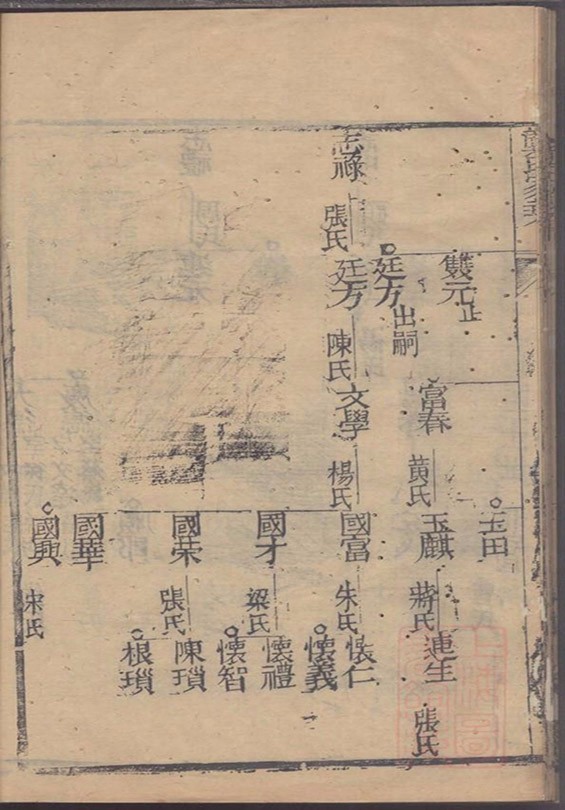 雙元止
玉田
富春
黄氏
玉麒
蔣氏
連生
張氏
廷方
出嗣
志祿
張氏
廷方
陳氏
文學
楊氏
國富
朱氏
懷仁
懷義
國才
梁氏
懷禮
懷智
國荣
張氏
陳瑣
根瑣
國華
國興
宋氏